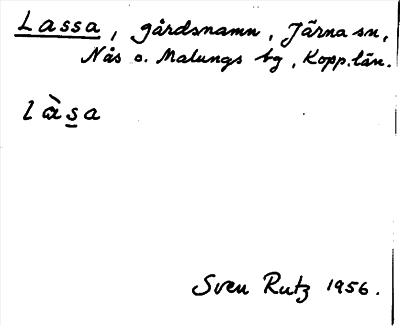 Lassa, gårdsnamn, Järna sn,
Nås o. Malungs bg, Kopp.län.
làsa
Sven Rutz 1956.